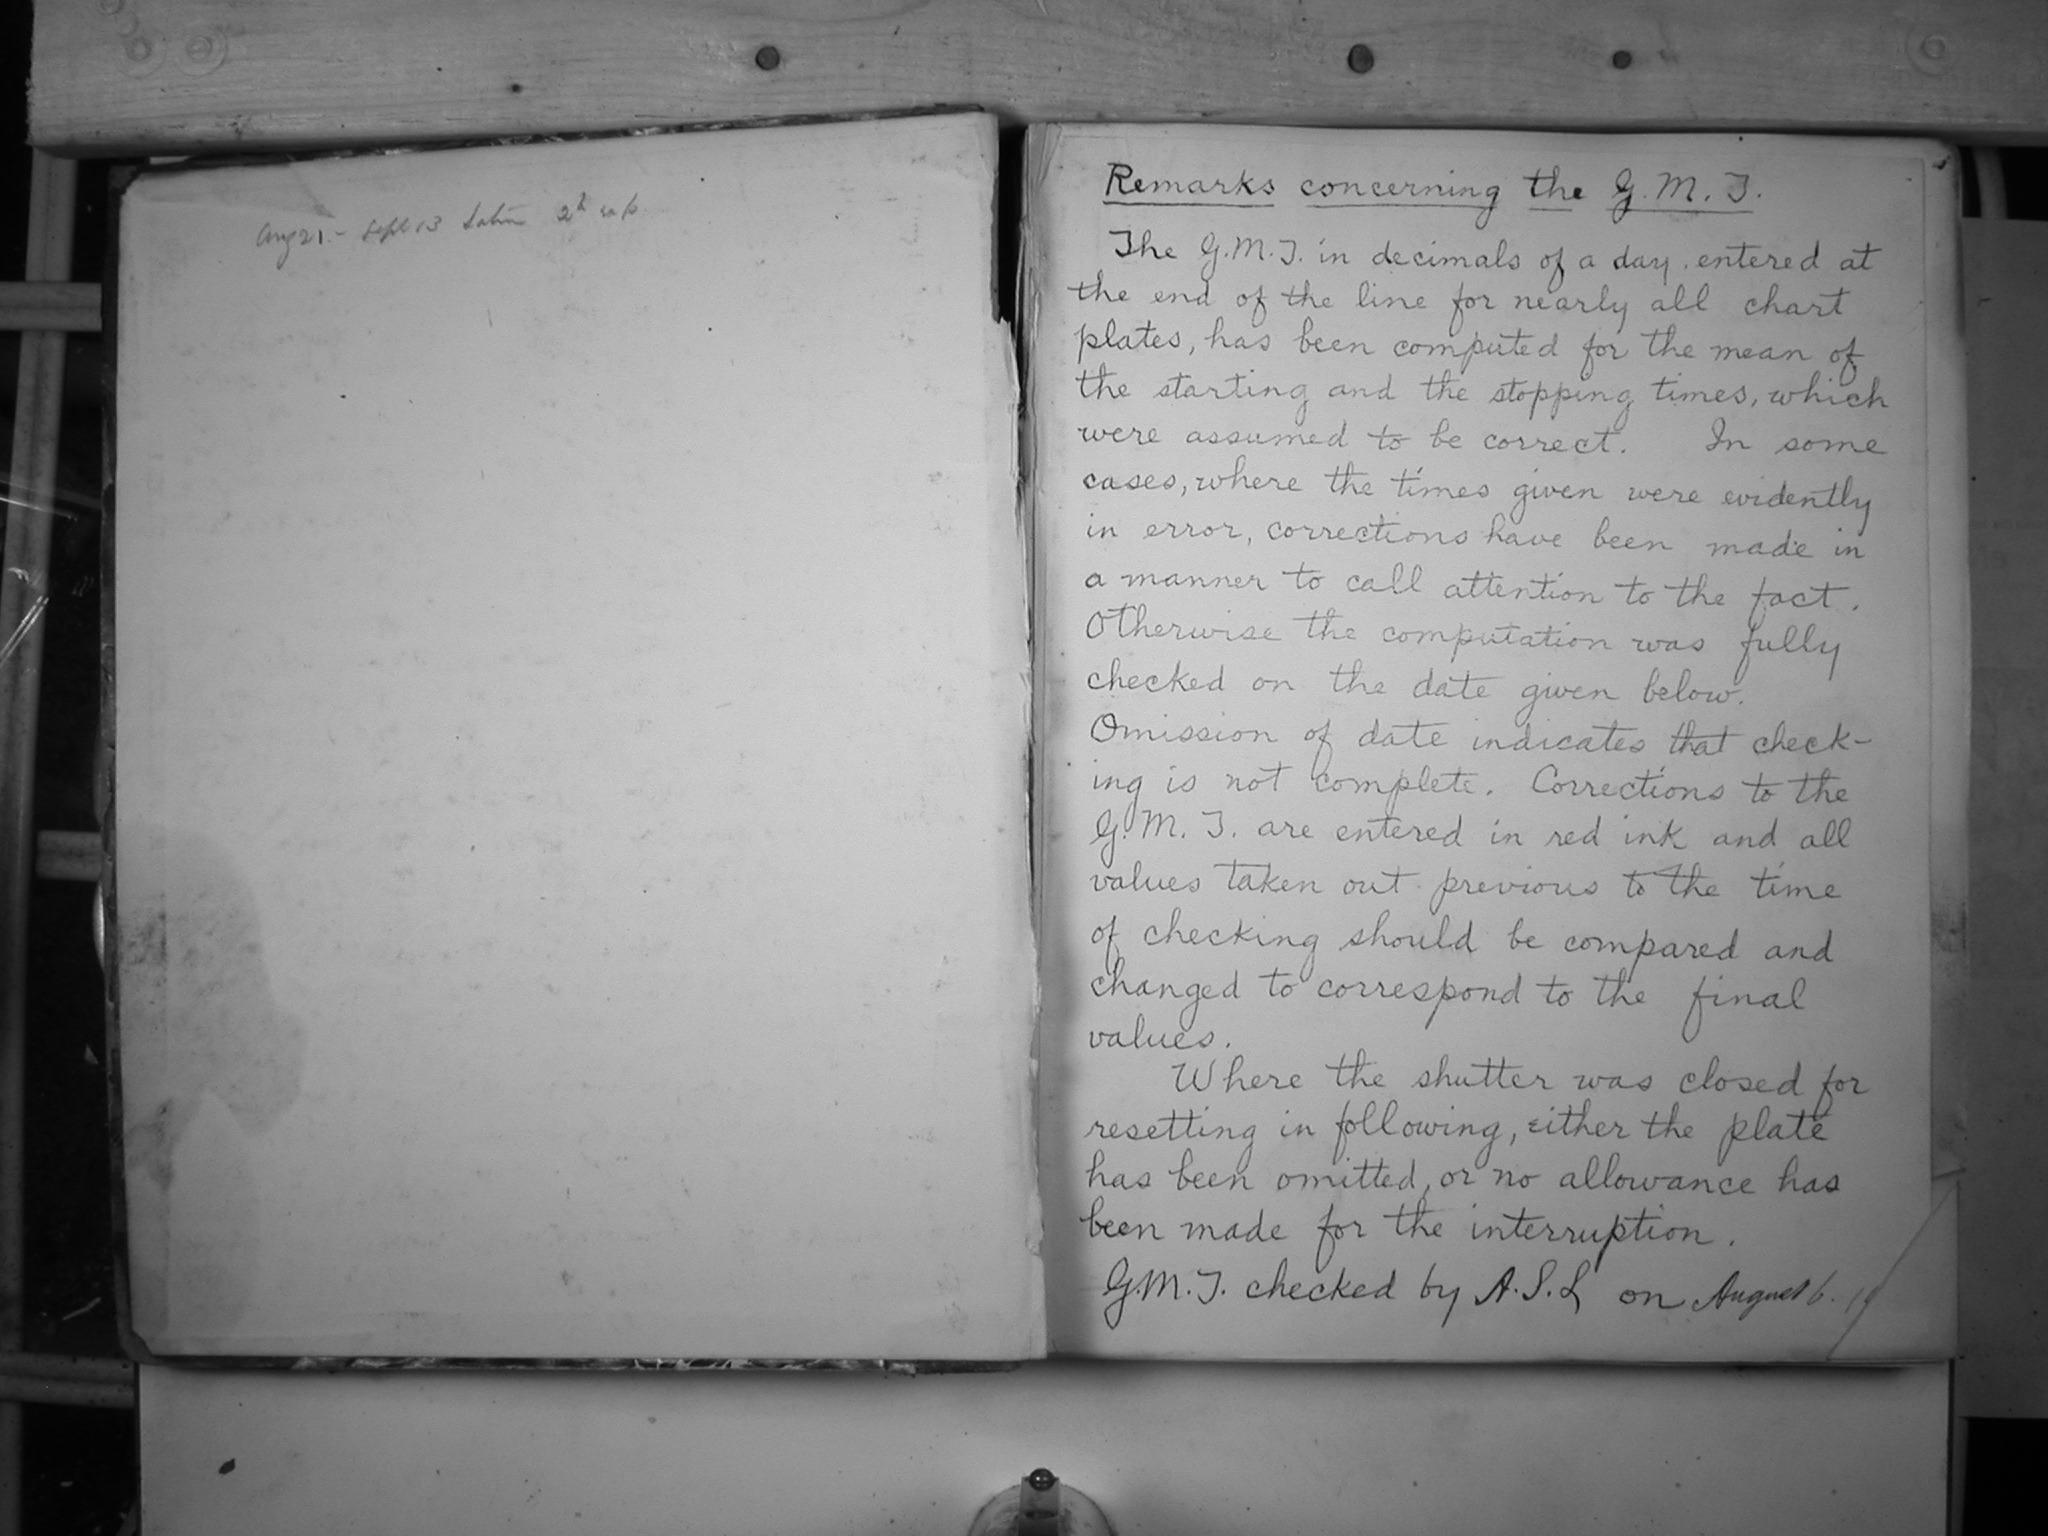 Aug 21 - Sept 13 2h
Remarks concerning the G.M.T.
The G.M.T. in decimals of a day, entered at
the end of the line for nearly all chart
plates, has been computed for the mean of
the starting and the stopping times, which
were assumed to be correct. In some
cases, where the times given were evidently
in error, corrections have been made in
a manner to call attention to the fact.
Otherwise the computation was fully
checked on the date given below.
Omission of date indicates that check-
ing is not complete. Corrections to the
G.M.T. are entered in red ink and all
values taken out previous to the time
of checking should be compared and
changed to correspond to the final
values.
Where the shutter was closed for
resetting in following, either the plate
has been omitted, or no allowance has
been made for the interruption.
G.M.T. checked by A.S.L on August 6. 19